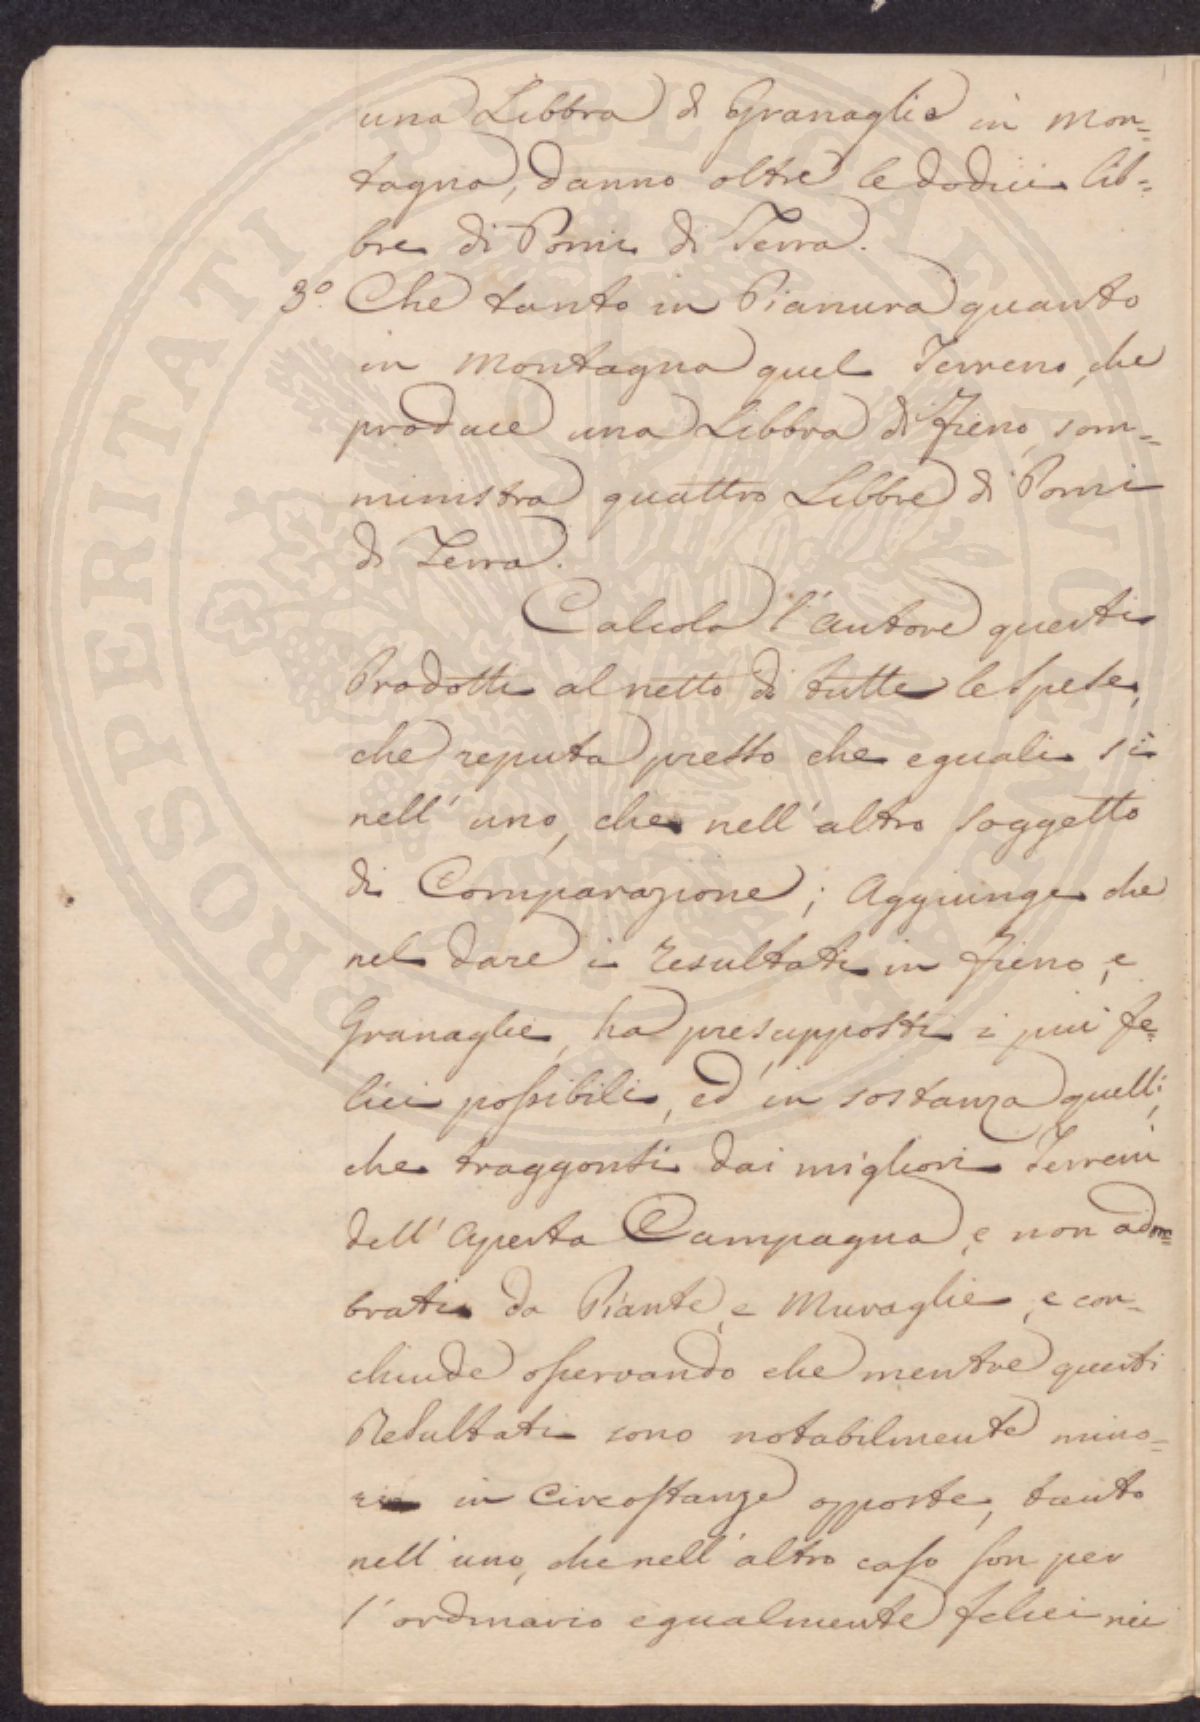 una Libbra di Granaglie in Mon=
tagna, danno oltre le dodici Lib=
bre di Pomi di Terra.
3.° Che tanto in Pianura quanto
in Montagna quel Terreno, che
produce una Libbra di Fieno, som=
ministra quattro Libbre di Pomi
di Terra.
Calcola l'autore questi
Prodotti al netto di tutte le spese,
che reputa presso che eguali sì
nell'uno, che nell'altro soggetto
di Comparazione; Aggiunge che
nel dare i resultati in Fieno, e
Granaglie, ha presupposti i più fe=
lici possibili, ed in sostanza quelli,
che traggonsi dai migliori Terreni
dell'aperta Campagna, e non adom=
brati da Piante, e Muraglie, e con=
chiude osservando che mentre questi
Resultati sono notabilmente mino=
ri in Circostanze opposte, tanto
nell'uno, che nell'altro caso son per
l'ordinario egualmente felici nei
PROSPERITATI PUBLICAE AUGENDAE